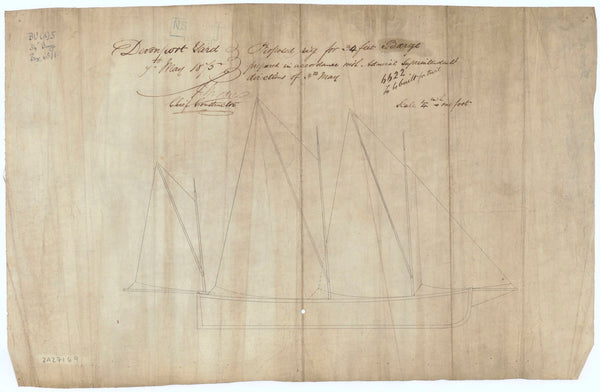 NS
Devonport Yard
7th May 18
Chief Constructor
Proposed rig for 34 feet Barge
prepared in accordance with Admiral Superintendent's
directions of 3rd May
6622
To be built for
Scale ¼ inch = one foot
2A27169